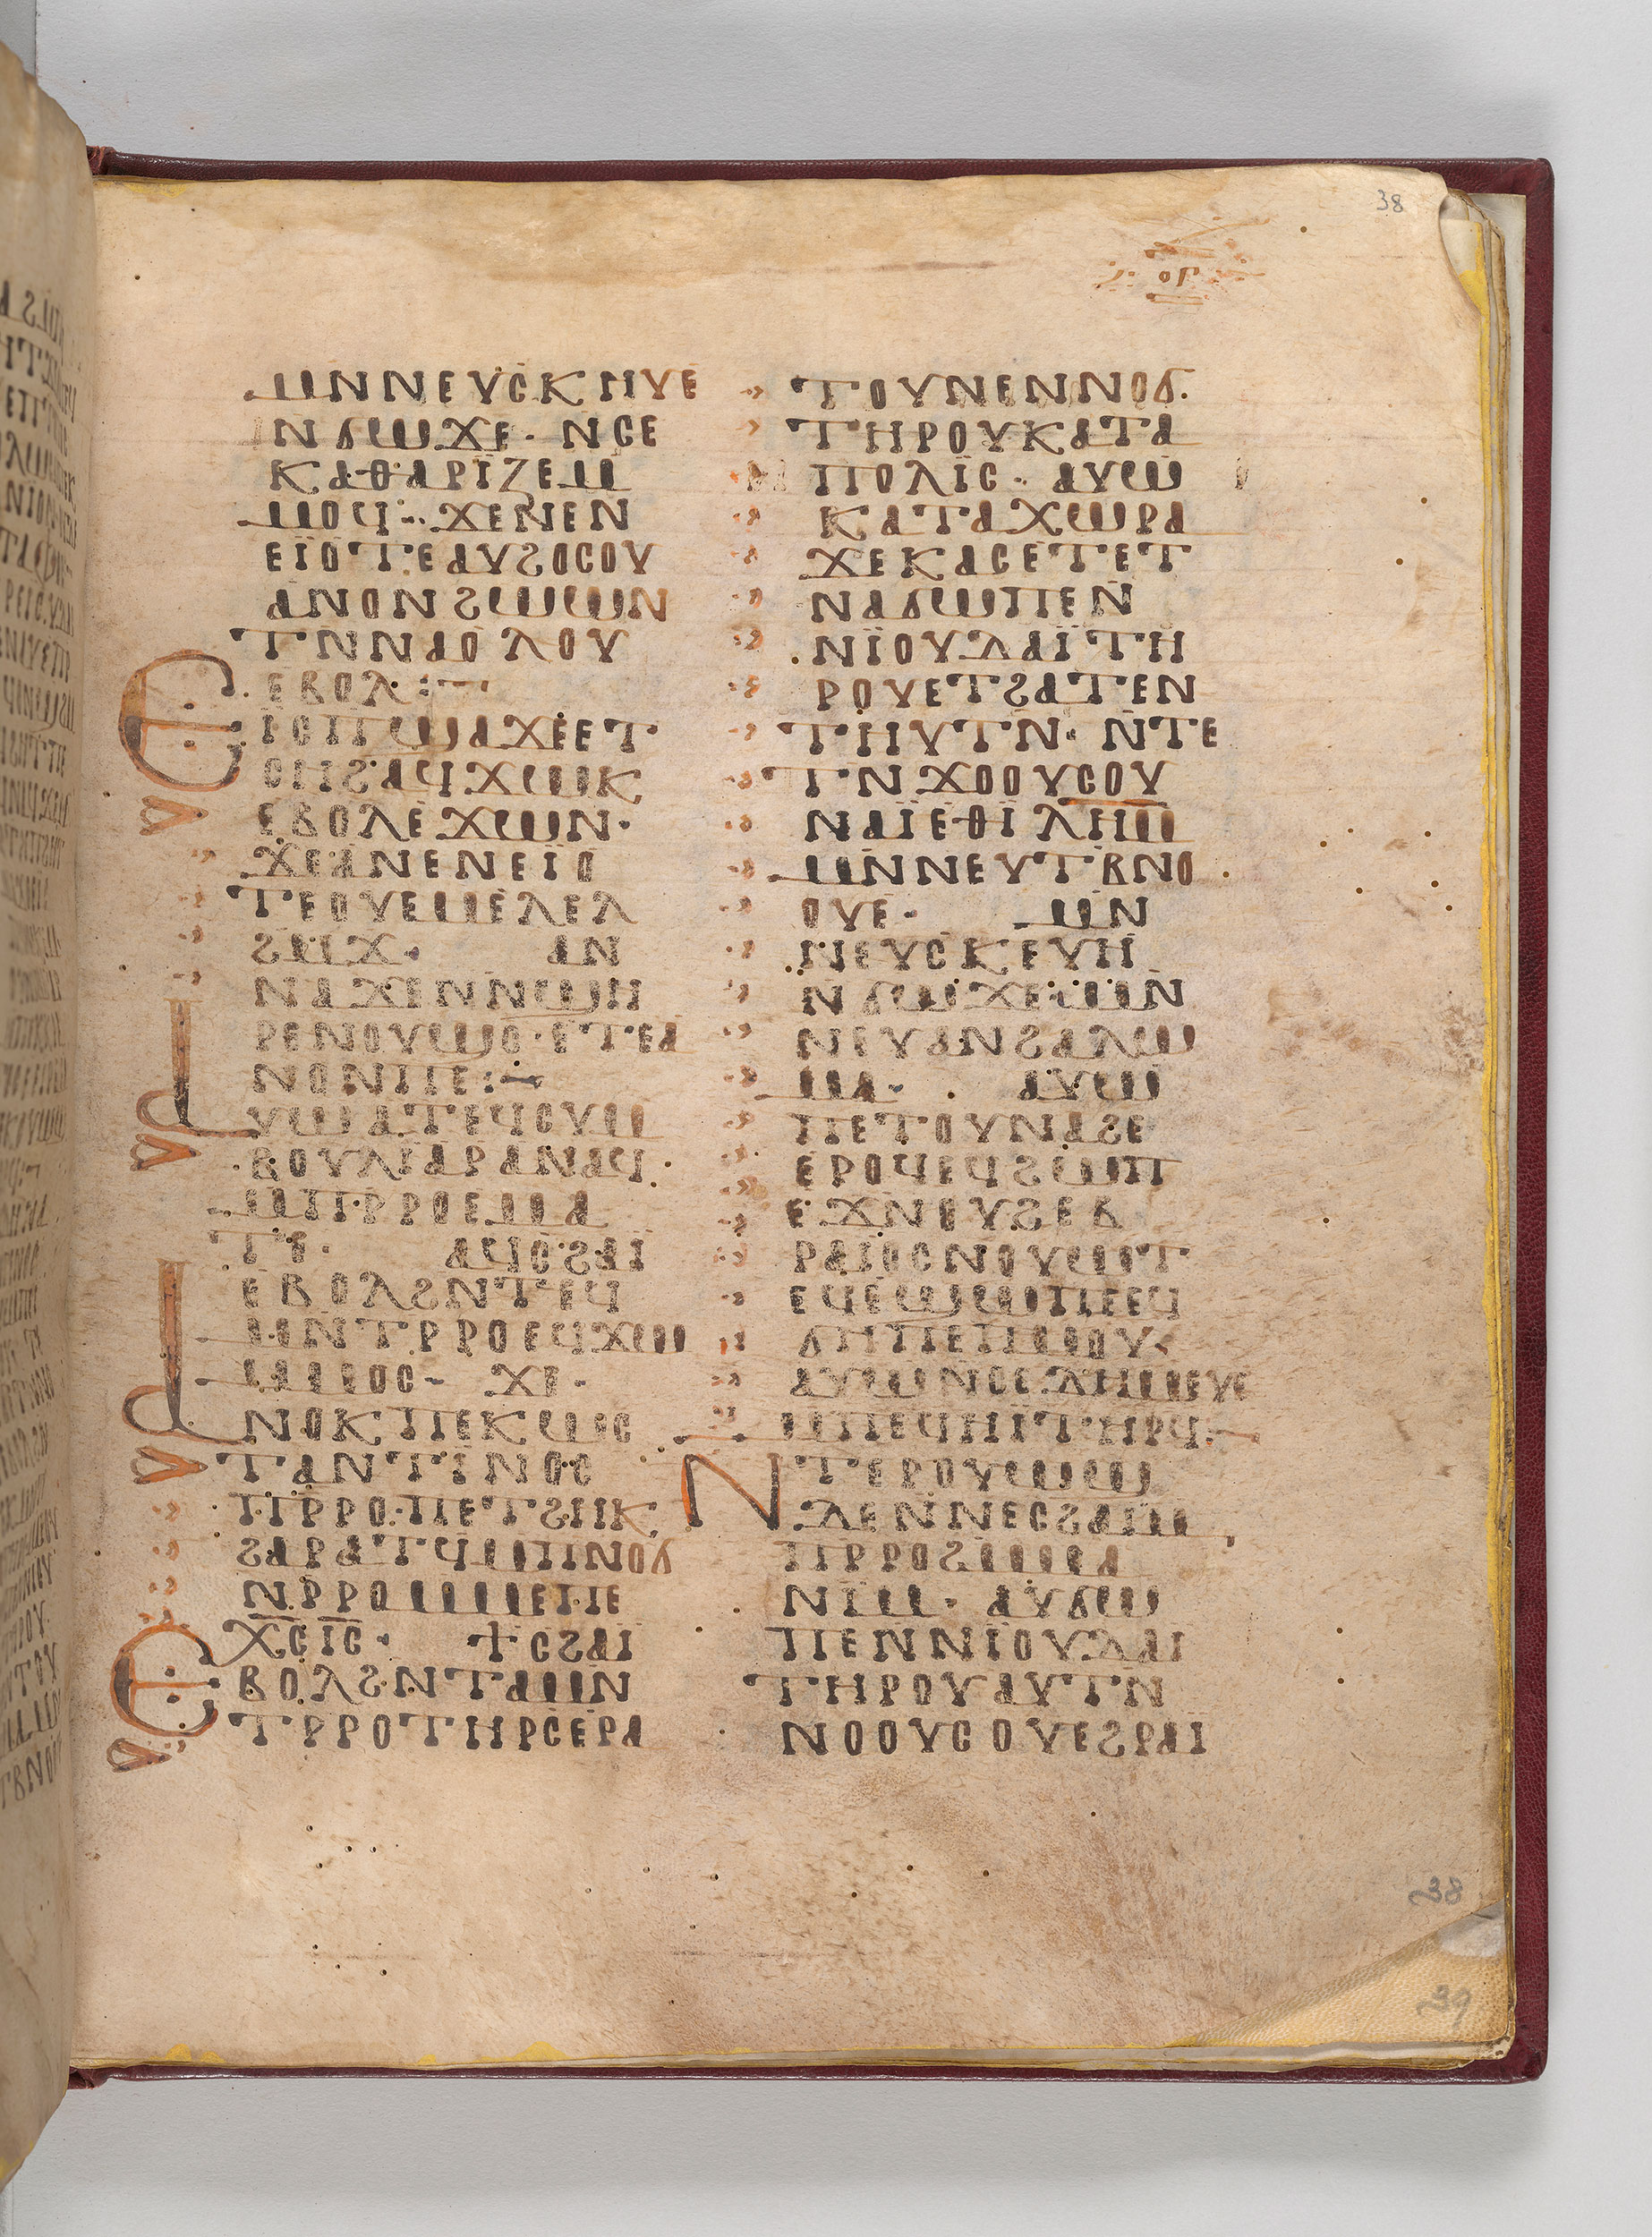 38
ⲟⲅ
ⲙⲛⲛⲉⲩⲥⲕⲏⲩⲉ
ⲛϭⲱϫⲉ· ⲛⲥⲉ
ⲕⲁⲑⲁⲣⲓⲍⲉⲙ
ⲙⲟϥ· ϫⲉⲛⲉⲛ
ⲉⲓⲟⲧⲉⲁⲩϩⲟⲥⲟⲩ
ⲁⲛⲟⲛϩⲱⲱⲛ
ⲧⲛⲛⲁⲟⲗⲟⲩ
ⲉⲃⲟⲗ:
ⲉⲓⲥⲡϣⲁϫⲉⲉⲧ
ⲥⲏϩⲁϥϫⲱⲕ
ⲉⲃⲟⲗⲉϫⲱⲛ·
ϫⲉⲁⲛⲉⲛⲉⲓⲟ
ⲧⲉⲟⲩⲉⲙⲉⲗⲉⲗ
ϩⲙϫ· ⲁⲛ
ⲛⲁϫⲉⲛⲛϣⲏ
ⲣⲉⲛⲟⲩⲱϭ·ⲉⲧⲉⲁ
ⲛⲟⲛⲡⲉ:
ⲁⲩⲱⲁⲧⲉϥⲥⲩⲙ
ⲃⲟⲩⲗⲓⲁⲣⲁⲛⲁϥ
ⲙⲡⲣⲣⲟⲉⲙⲁ
ⲧⲉ· ⲁϥⲥϩⲁⲓ
ⲉⲃⲟⲗϩⲛⲧⲉϥ
ⲙⲛⲧⲣⲣⲟⲉϥϫⲱ
ⲙⲙⲟⲥ· ϫⲉ·
ⲁⲛⲟⲕⲡⲉⲕⲱⲥ
ⲧⲁⲛⲧⲓⲛⲟⲥ
ⲡⲣⲣⲟ·ⲡⲉⲧϩⲏⲕ
ϩⲁⲣⲁⲧϥⲙⲡⲛⲟϭ
ⲛⲣⲣⲟⲙⲙⲉⲡⲉ
ⲭⲥⲓⲥ· ϯⲥϩⲁⲓ
ⲉⲃⲟⲗϩⲛⲧⲁⲙⲛ
ⲧⲣⲣⲟⲧⲏⲣⲥⲉⲣⲁ
ⲧⲟⲩⲛⲉⲛⲛⲟϭ·
ⲧⲏⲣⲟⲩⲕⲁⲧⲁ
ⲡⲟⲗⲓⲥ· ⲁⲩⲱ
ⲕⲁⲧⲁⲭⲱⲣⲁ
ϫⲉⲕⲁⲥⲉⲧⲉⲧ
ⲛⲁϭⲱⲡⲉⲛ
ⲛⲓⲟⲩⲇⲁⲓⲧⲏ
ⲣⲟⲩⲉⲧϩⲁⲧⲉⲛ
ⲧⲏⲩⲧⲛ· ⲛⲧⲉ
ⲧⲛϫⲟⲟⲩⲥⲟⲩ
ⲛⲁⲓⲉⲑⲓⲗⲏⲙ
ⲙⲛⲛⲉⲩⲧⲃⲛⲟ
ⲟⲩⲉ· ⲙⲛ
ⲛⲉⲩⲥⲕⲉⲩⲏ
ⲛϭⲱϫⲉⲙⲛ
ⲛⲉⲩⲁⲛϩⲁⲗⲱ
ⲙⲁ· ⲁⲩⲱ
ⲡⲉⲧⲟⲩⲛⲁϩⲉ
ⲉⲣⲟϥⲉϥϩⲱⲡ
ⲉϫⲛⲟⲩϩⲉⲃ
ⲣⲁⲓⲟⲥⲛⲟⲩⲱⲧ
ⲉϥⲉϣⲱⲡⲉⲉϥ
ϭⲏⲡⲉⲡⲙⲟⲩ
ⲁⲩⲱⲛⲥⲉⲇⲏⲙⲉⲩⲉ
ⲙⲡⲉϥⲏⲓⲧⲏⲣϥ:
ⲛⲧⲉⲣⲟⲩⲱϣ
ⲇⲉⲛⲛⲉⲥϩⲁⲓⲙ
ⲡⲣⲣⲟϩⲙⲙⲁ
ⲛⲓⲙ· ⲁⲩϭⲱ
ⲡⲉⲛⲛⲓⲟⲩⲇⲁⲓ
ⲧⲏⲣⲟⲩⲁⲩⲧⲛ
ⲛⲟⲟⲩⲥⲟⲩⲉϩⲣⲁⲓ
38
39